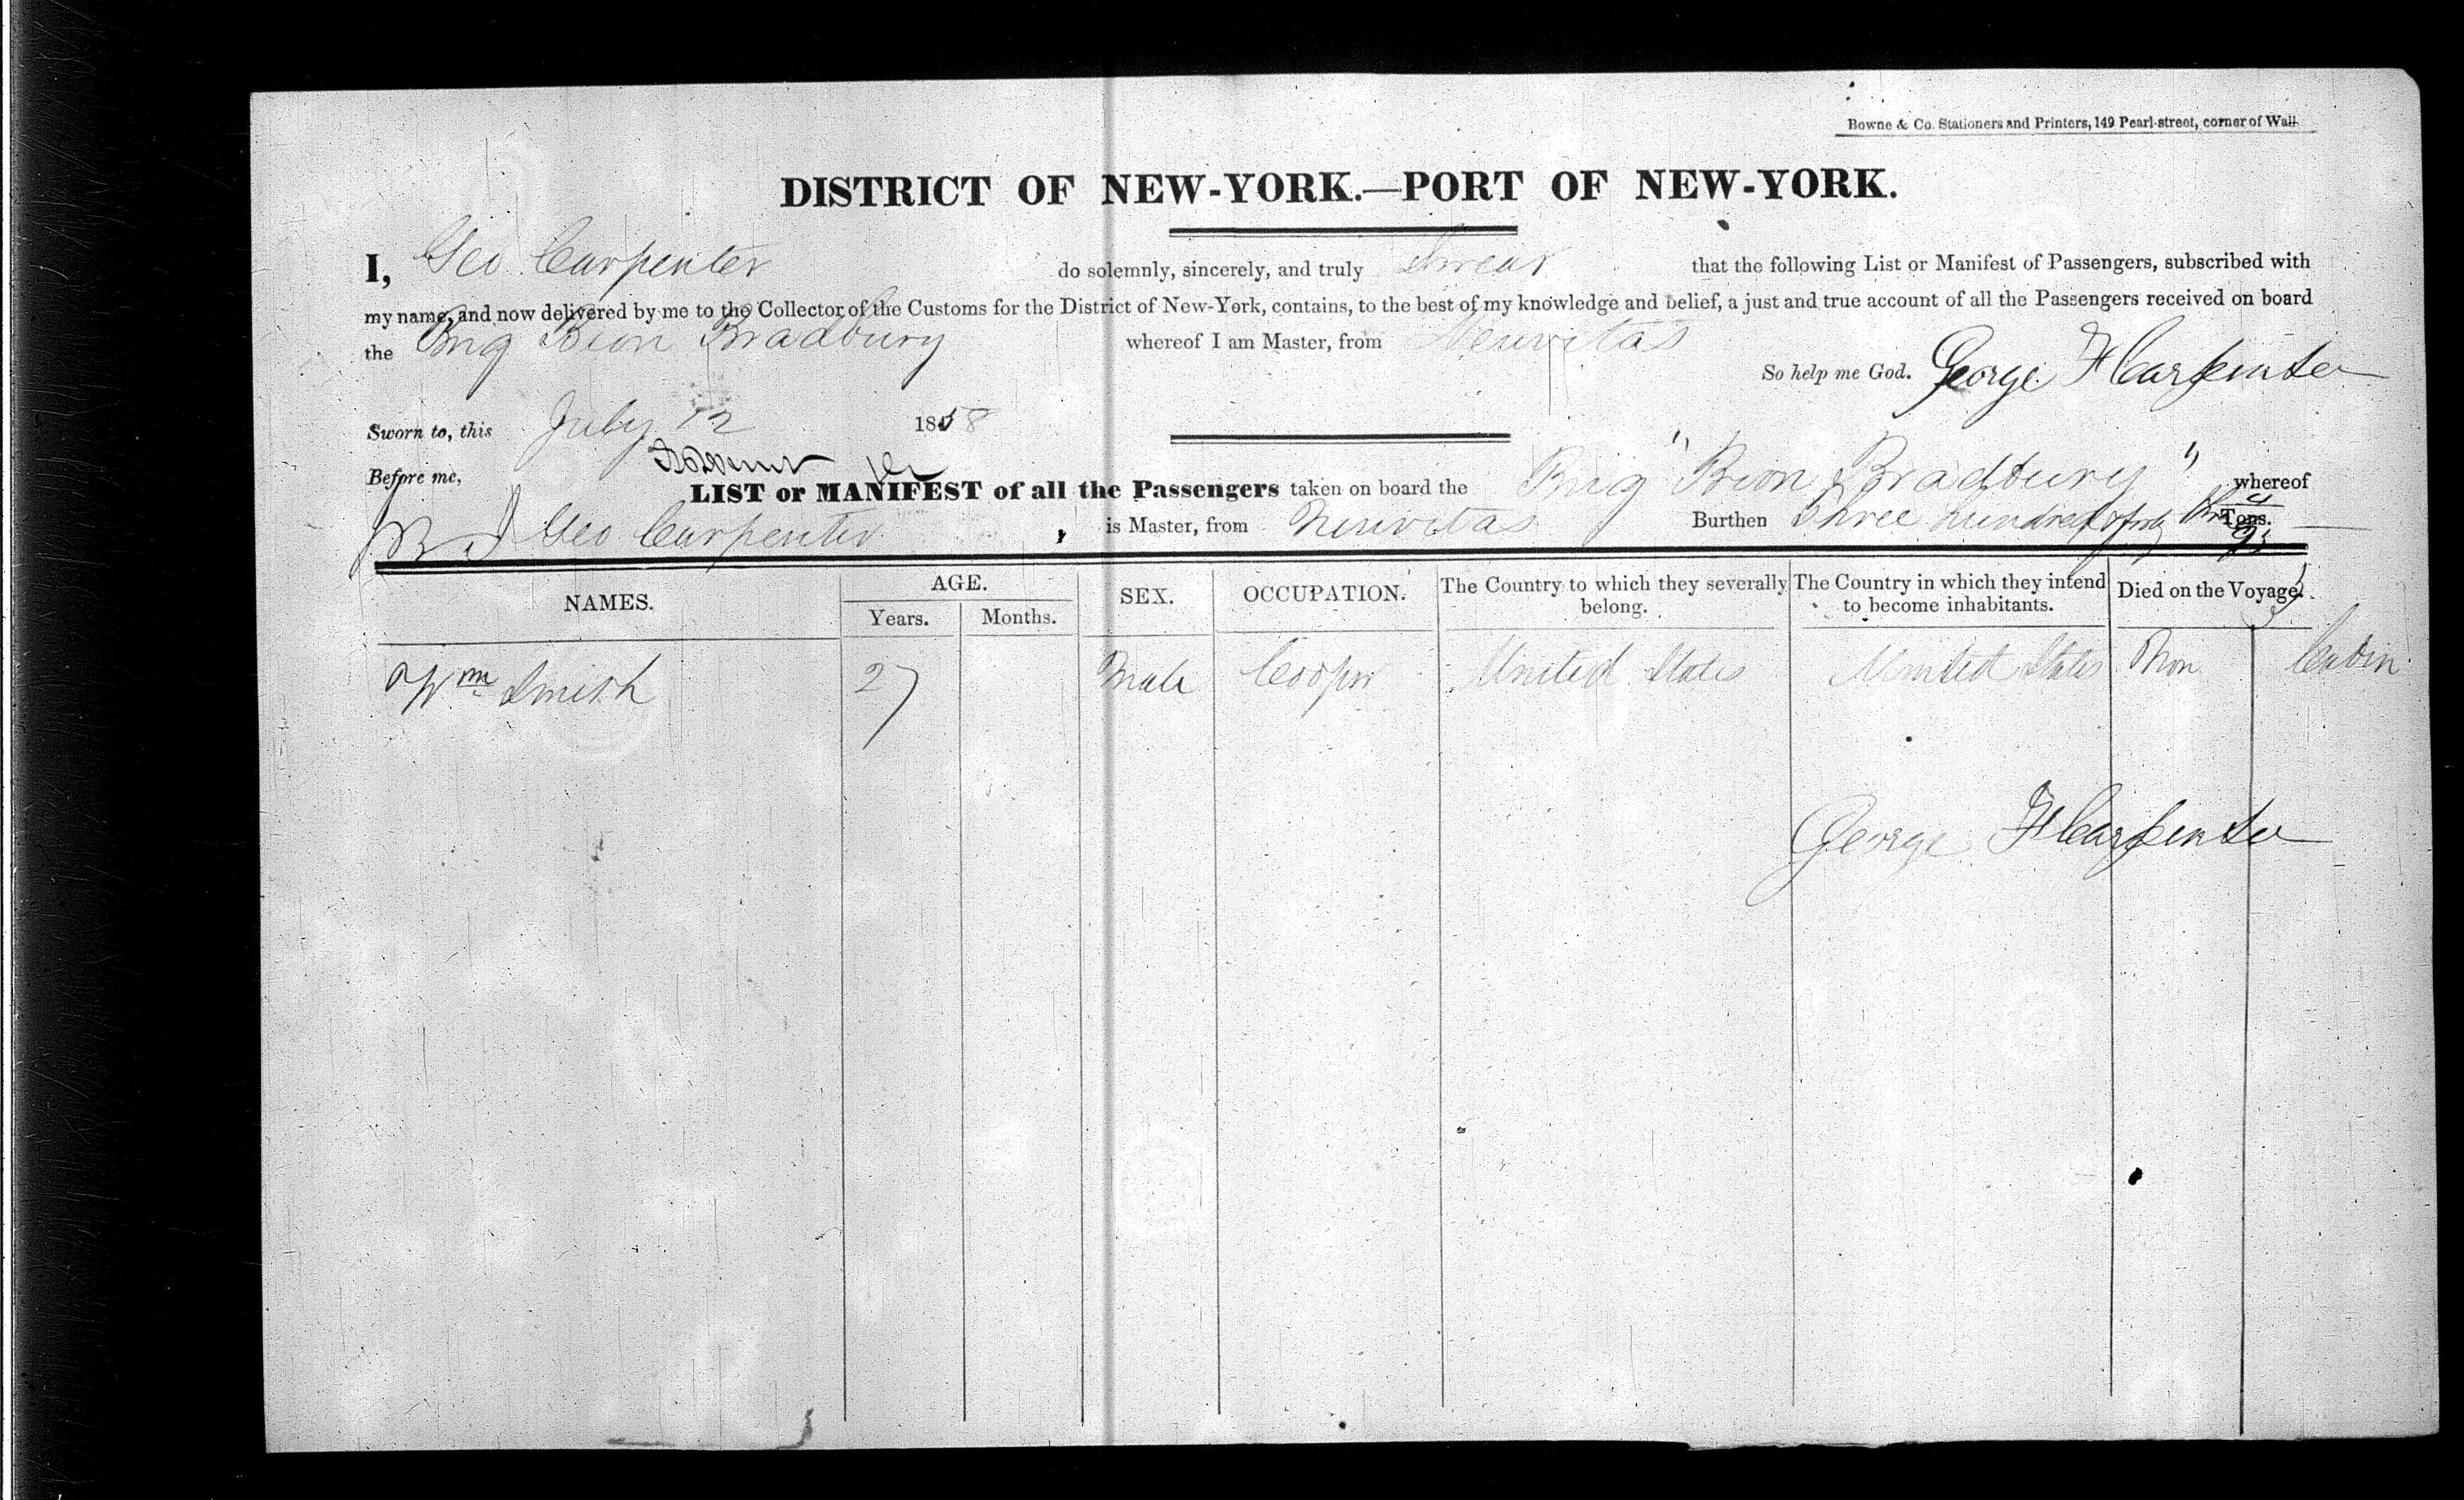 Bowne & Co. Stationers and Printers, 149 Pearl-street, corner of Wall.
DISTRICT OF NEW-YORK.—PORT OF NEW-YORK.
I, Geo Carpenter do solemnly, sincerely, and truly Swear that the following List or Manifest of Passengers, subscribed with
my name, and now delivered by me to the Collector of the Customs for the District of New-York, contains, to the best of my knowledge and belief, a just and true account of all the Passengers received on board
the Brig Bion Bradbury whereof I am Master, from Neuvitas
So help me God. George F Carpenter
Sworn to, this July 12 1858
Before me,
LIST or MANIFEST of all the Passengers taken on board the Brig "Bion Bradbury" whereof
Geo Carpenter is Master, from Neuvitas Burthen Three hundred Tons.
NAMES. AGE. SEX. OCCUPATION. The Country to which they severally belong. The Country in which they intend to become inhabitants. Died on the Voyage.
Years. Months.
Wm Smith 27 Male Cooper United States United States Non Cabin
George F Carpenter